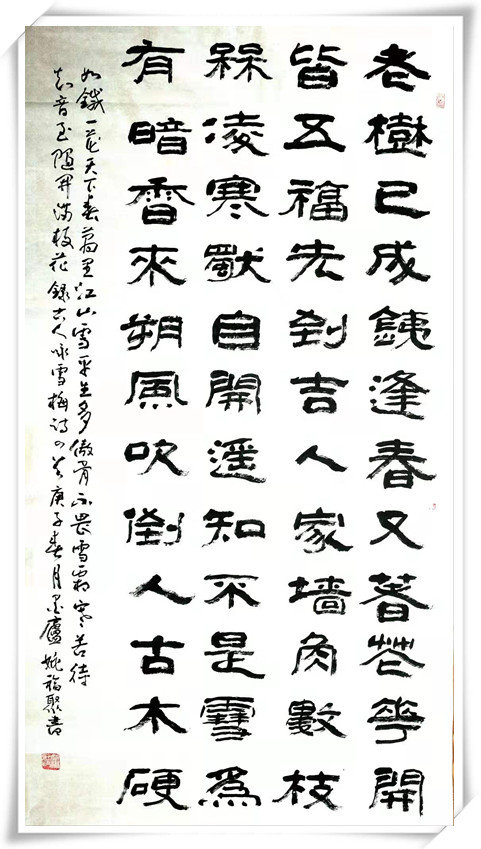 老樹已成銕逢春又著花華開
皆五福先到吉人家墙角數枝
槑凌寒獨自開遥知不是雪為
有暗香來朔風吹倒人古木硬
如鐵一花天下春萬里江山雪平生多傲骨不畏雪霜寒苦待
知音至隨開滿枝花錄古人咏雪梅詩四首庚子春月墨廬姚福聚書